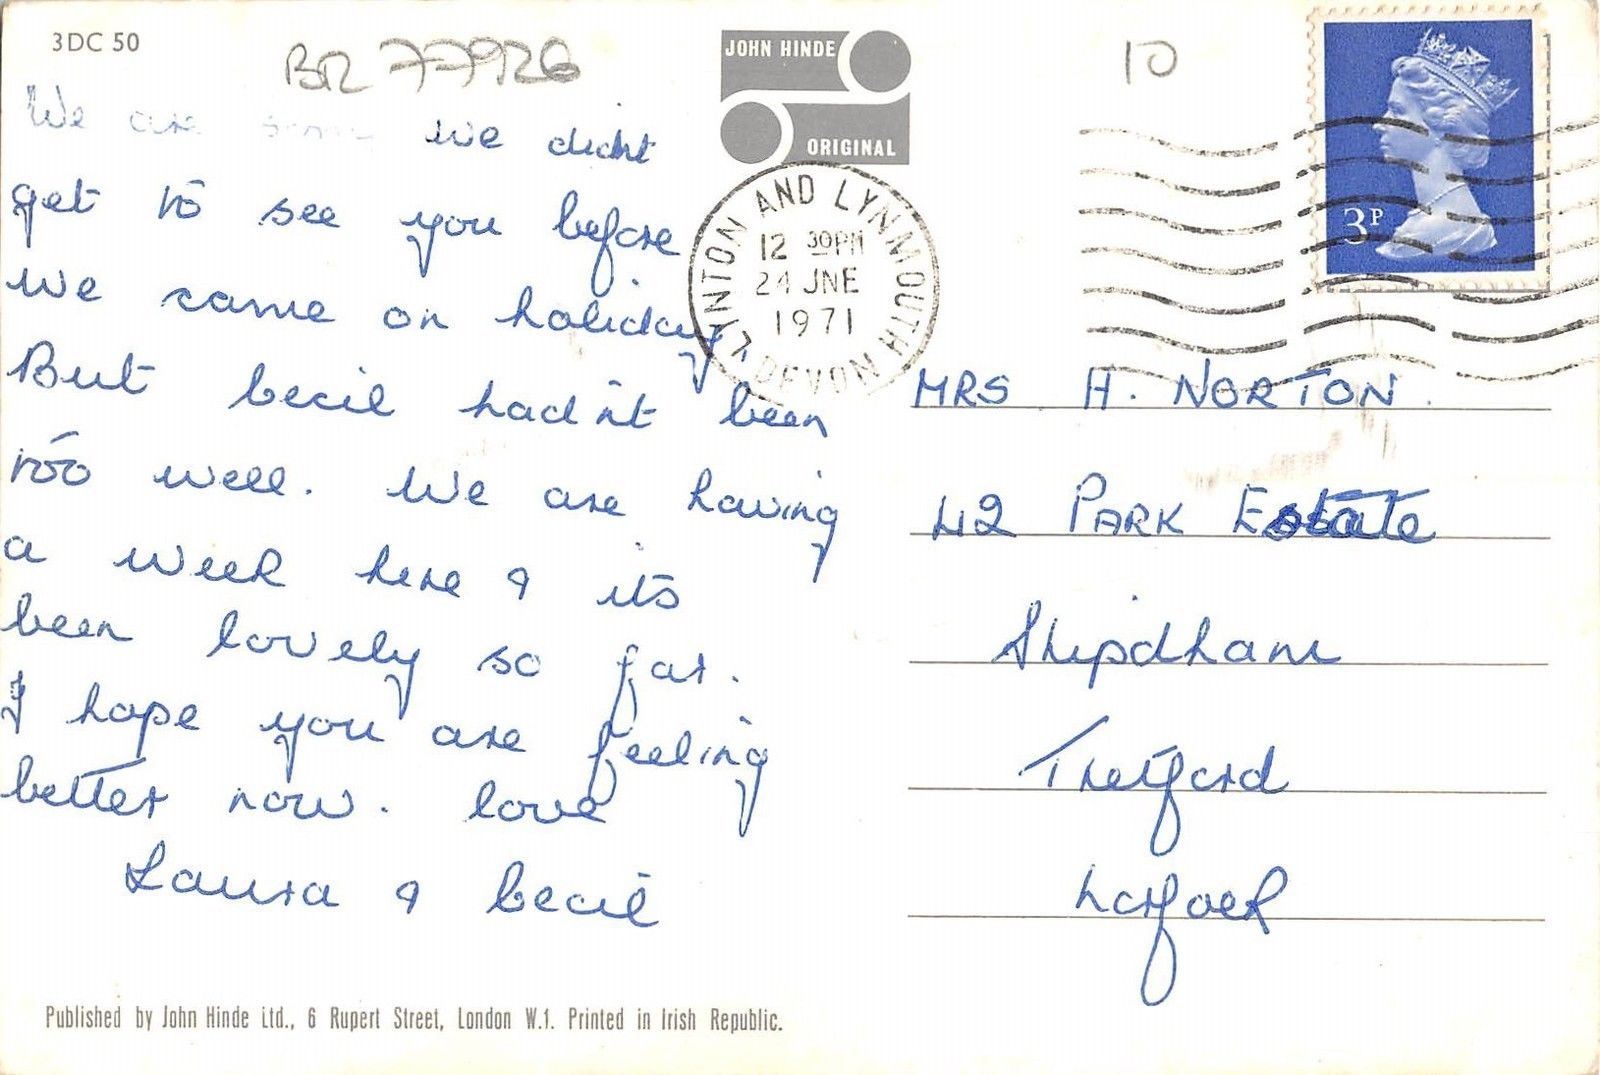 3DC 50
BR 77926
10
JOHN HINDE
ORIGINAL
3P
LYNTON AND LYNMOUTH DEVON
12 30PM
24 JNE
1971
We are sorry we didnt
get to see you before
we came on holiday
But Cecil hadn't been
too well. We are having
a week here & its
been lovely so far.
I hope you are feeling
better now. love
Laura & Cecil
MRS H. NORTON.
42 PARK Estate
Shipdham
Thetford
Norfolk
Published by John Hinde Ltd., 6 Rupert Street, London W.1. Printed in Irish Republic.